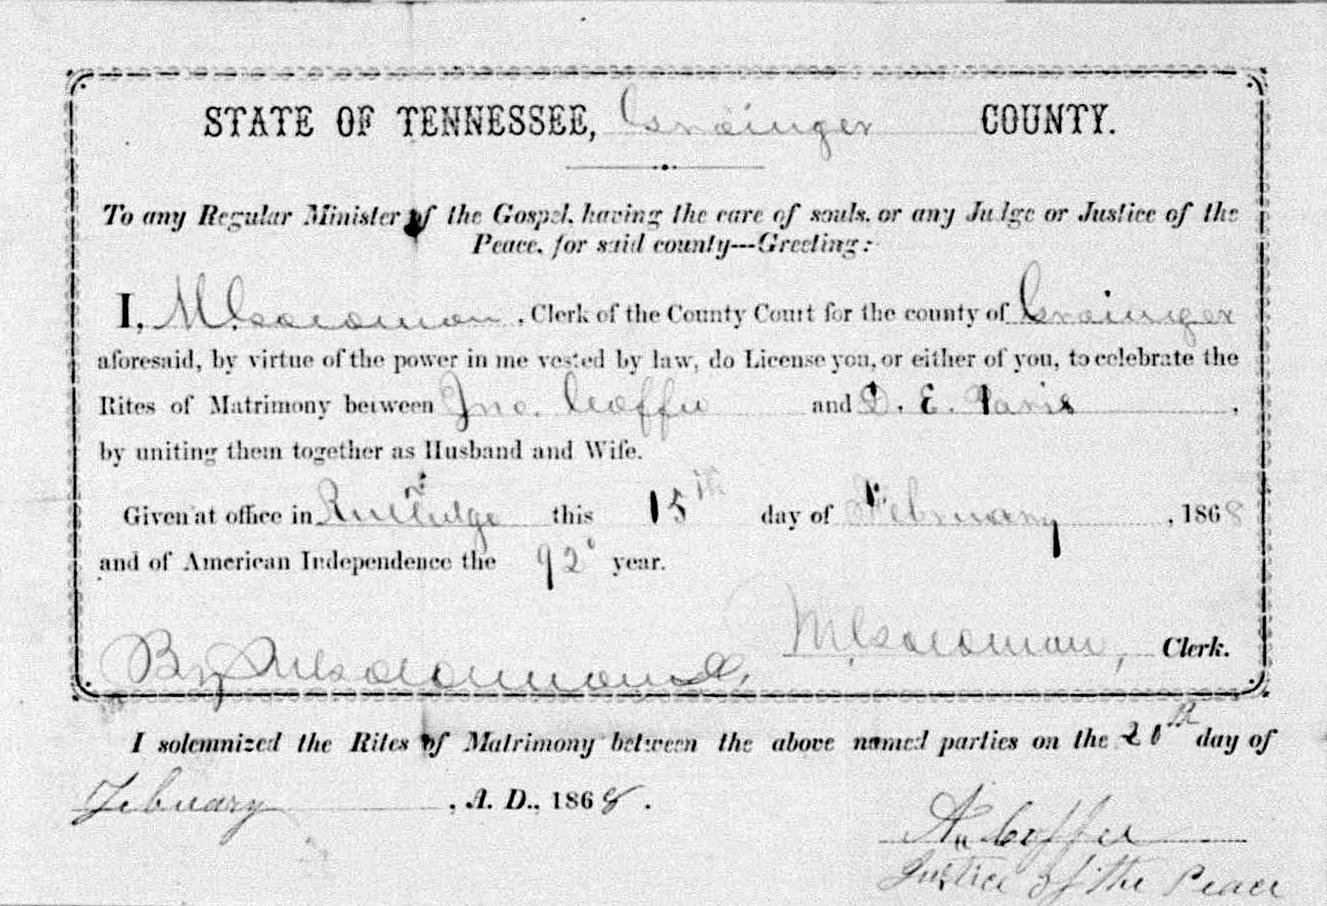 STATE OF TENNESSEE, Grainger COUNTY.
To any Regular Minister of the Gospel, having the care of souls, or any Judge or Justice of the
Peace, for said county---Greeting:
I, M Goodman, Clerk of the County Court for the county of Grainger
aforesaid, by virtue of the power in me vested by law, do License you, or either of you, to celebrate the
Rites of Matrimony between Jno. Coffee and D. E. Paris,
by uniting them together as Husband and Wife.
Given at office in Rutledge this 15th day of February, 1868
and of American Independence the 92d year.
M Goodman, Clerk.
By
I solemnized the Rites of Matrimony between the above named parties on the 20th day of
February, A. D., 1868.
Coffee
Justice of the Peace